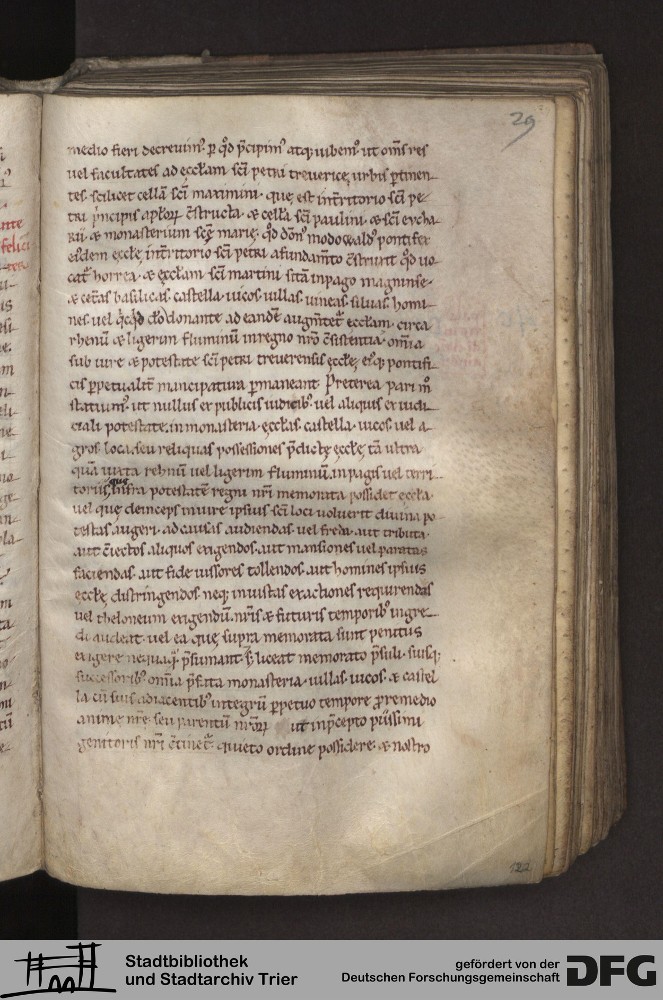 29
medio fieri decrevim᷒. ꝑ qđ p̄cipim᷒ atq; iubem᷒. ut om̄s res
vel facultates ad eccłam. sc̄i petri treverice, urbis ꝑtinen-
tes. scilicet cellā sc̄i maximini. que, est int̄ritorio sc̄i pe-
tri principis apłoꝝ c̄structa. & cellā sc̄i paulini. & sc̄i eucha-
rii. & monasterium sc̄e marię. qđ dōn᷒ modowald᷒ pontifex
eide͞m eccłę. int̄ritorio sc̄i petri. afundam̄to c̄struxit qđ uo-
cat᷑ horrea. & eccłam sc̄i martini sitā inpago magninse.
& cet̄as basilicas. castella. uicos. uillas. uineas. siluas. homi-
nes. vel qcq̇d do donante ad eandē augm̄tet᷑ eccłam. circa
rhenū & ligerim fluminū inregno nr̄o c̄sistentia. om̄ia
sub iure & potestate sc̄i petri treverensis eccłę. ei᷒q; pontifi-
cis ꝑpetualit̄ mancipatura ꝑmaneant. Preterea pari m̊
statuim᷒. ut nullus ex publicis iudicib᷒. vel aliquis ex iudi-
ciali potestate. in monasteria. eccłas. castella. uicos. vel a-
gros. loca. seu reliquas possessiones p̄dictę eccłę. tā ultra
quā iuxta rehnū vel ligerim fluminū. in pagis vel terri-
toriis, que infra potestatē regni nr̄i memorata possidet eccła.
vel que deinceps in iure ipsius sc̄i loci voluerit divina po-
testas augeri. ad causas audiendas. vel freda. aut tributa.
aut c̄iectos aliquos exigendos. aut mansiones vel paratas
faciendas. aut fide iussores tollendos. aut homines ipsius
eccłę distringendos. neq; iniustas exactiones requirendas
vel theloneum exigendū. nr̄is & futuris temporib᷒ ingre-
di audeat. vel ea que, supra memorata sunt penitus
exigere nequaqᷓ p̄sumant. S; liceat memorato p̄suli. suisq;
successorib᷒. om̄ia p̄fata monasteria. uillas. uicos. & castel-
la cū suis adiacentib᷒ integrū ꝑpetuo tempore ꝓremedio
animę nr̄ę. seu parentū nr̄oꝝ ut inp̄cepto piissimi
genitoris nr̄i c̄tinet᷑. quieto ordine possidere. & nostro
122
Stadtbibliothek
und Stadtarchiv Trier
gefördert von der
Deutschen Forschungsgemeinschaft
DFG